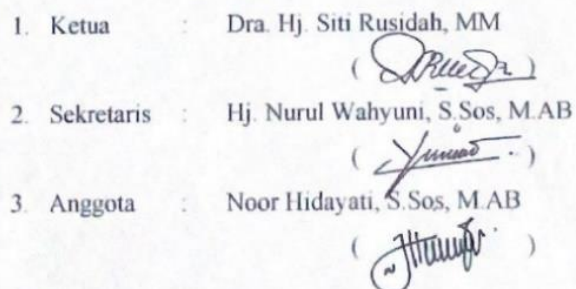 1. Ketua : Dra. Hj. Siti Rusidah, MM
( )
2. Sekretaris : Hj. Nurul Wahyuni, S.Sos, M.AB
( )
3. Anggota : Noor Hidayati, S.Sos, M.AB
( )